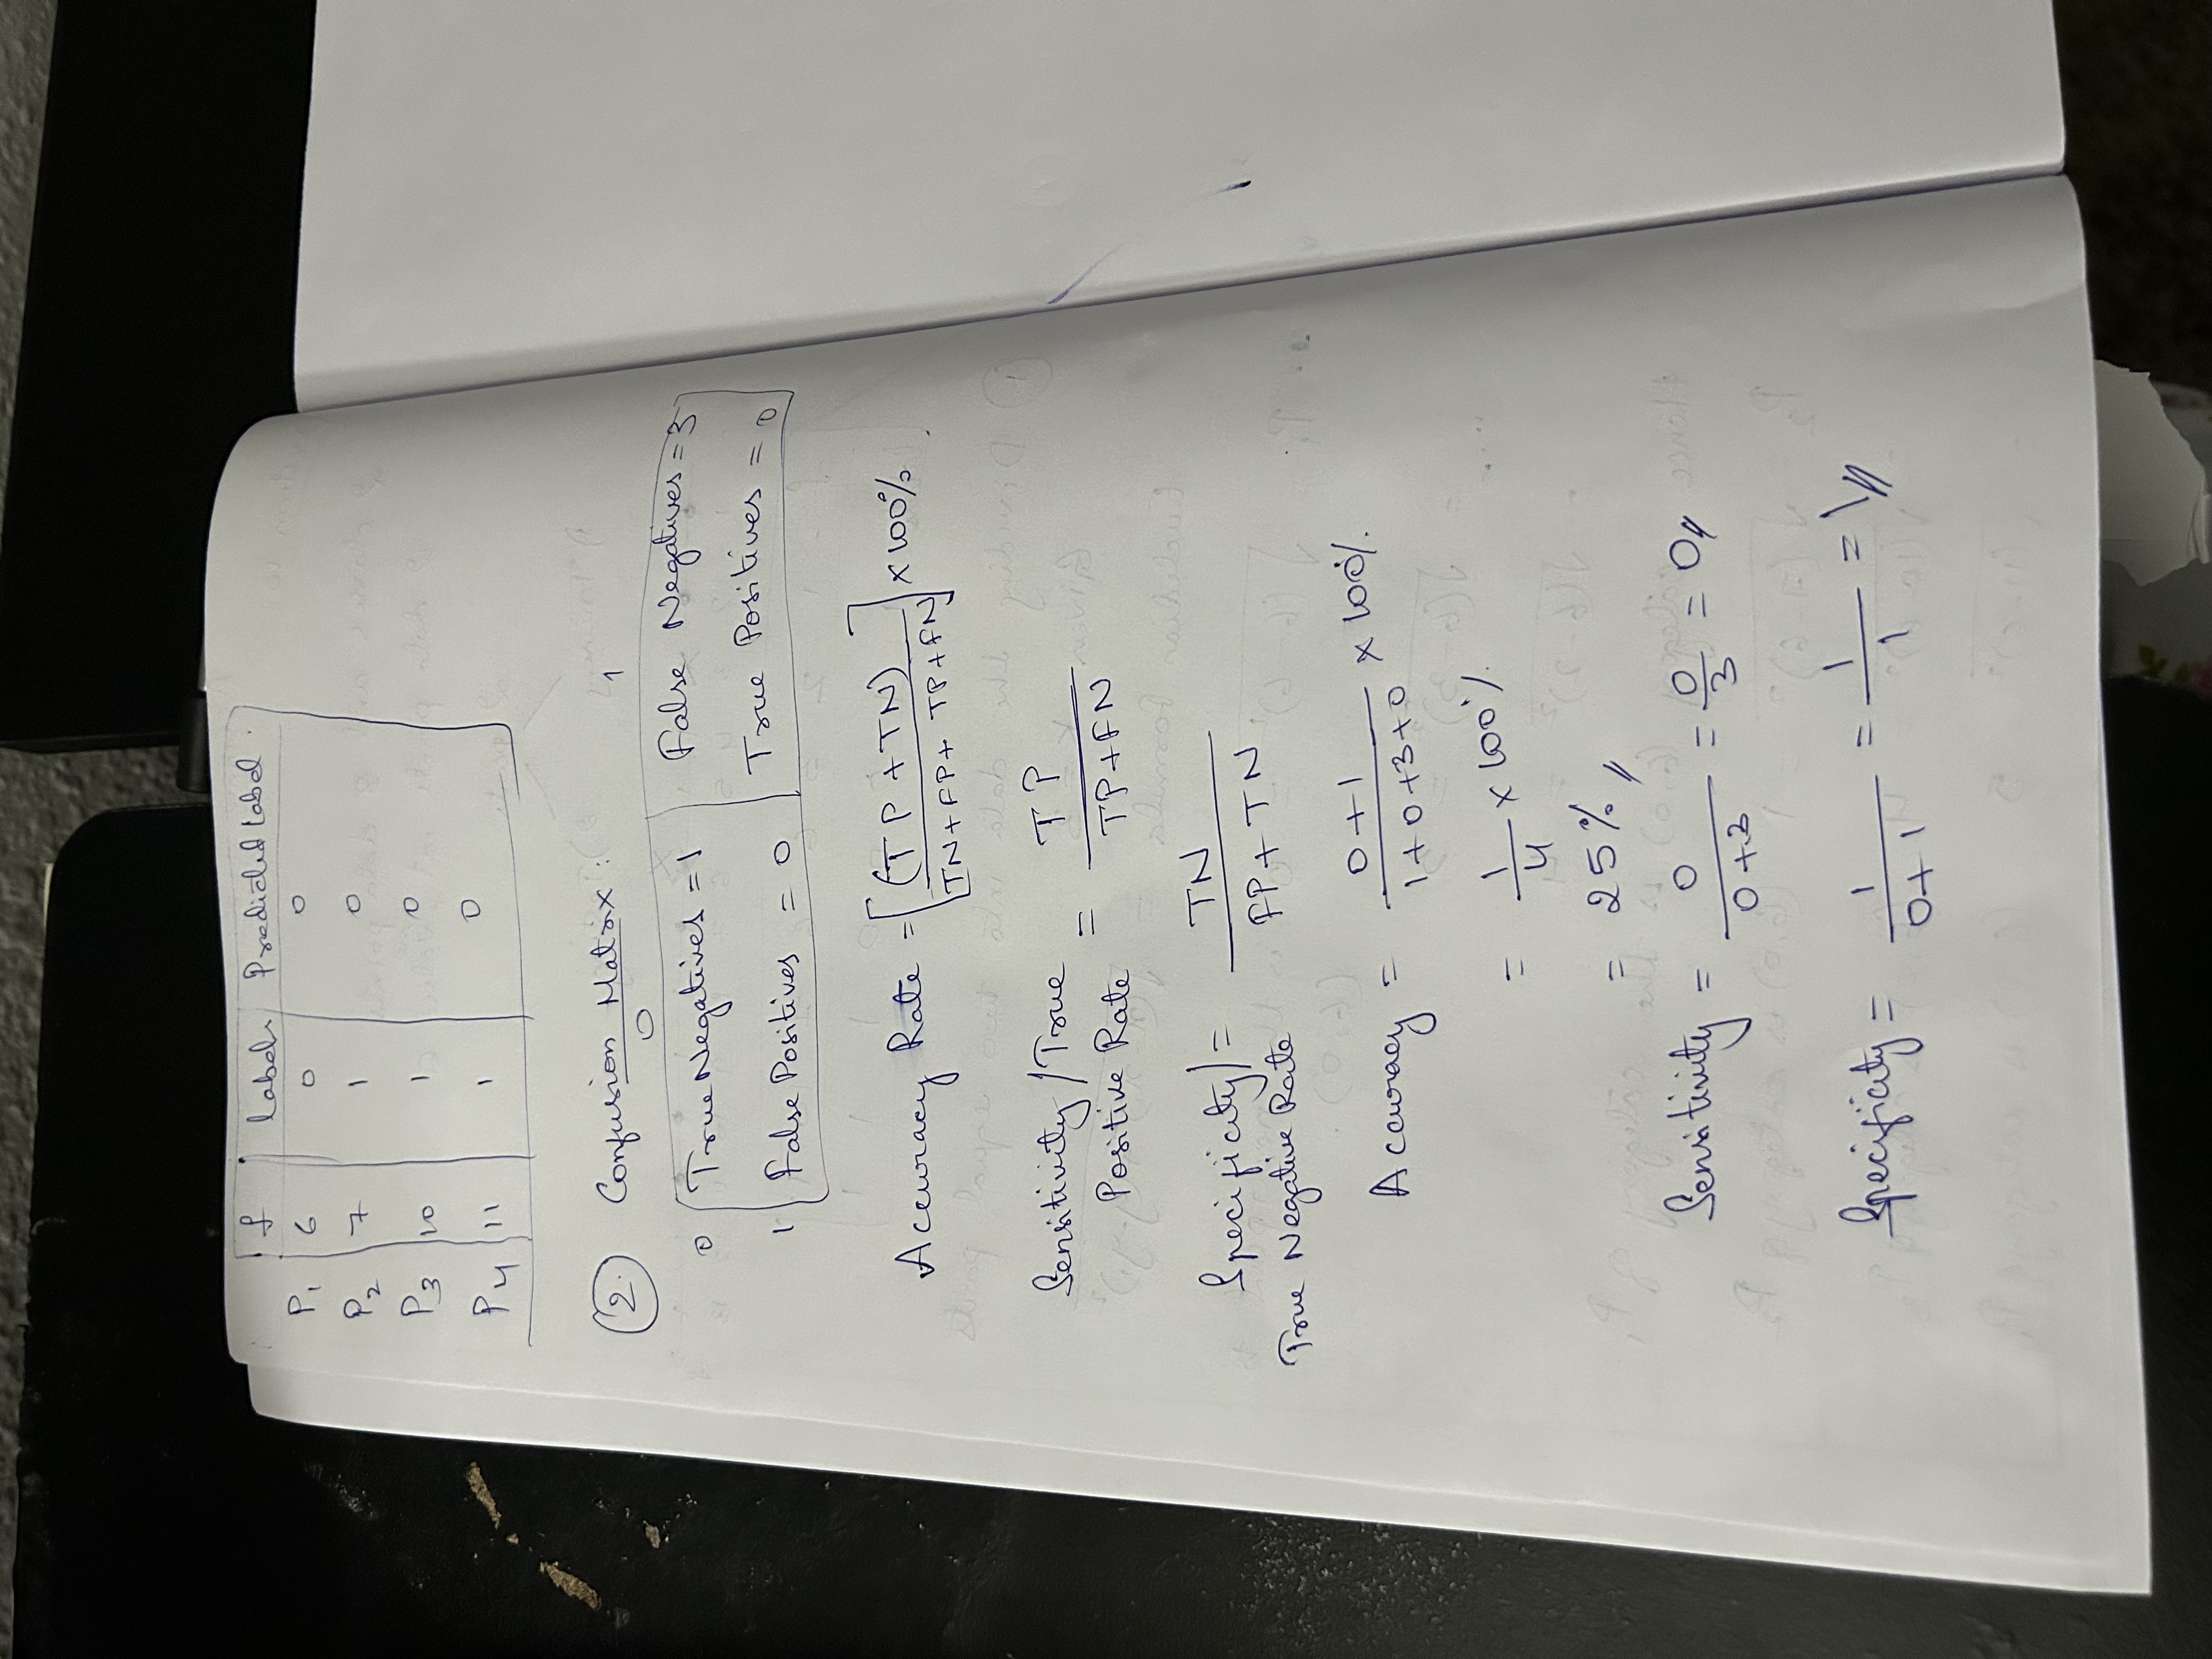 f labels Predicted Label
P1 6 0 0
P2 7 1 0
P3 10 1 0
P4 11 1 0
2. Confusion Matrix :
0 1
0 True Negatives = 1 False Negatives = 3
1 False Positives = 0 True Positives = 0
Accuracy Rate = [(TP + TN) / TN + FP + TP + FN] × 100%
Sensitivity / True Positive Rate = TP / TP + FN
Specificity / True Negative Rate = TN / FP + TN
Accuracy = 0+1 / 1+0+3+0 × 100%.
= 1/4 × 100%.
= 25%
Sensitivity = 0 / 0+3 = 0/3 = 0
Specificity = 1 / 0+1 = 1/1 = 1